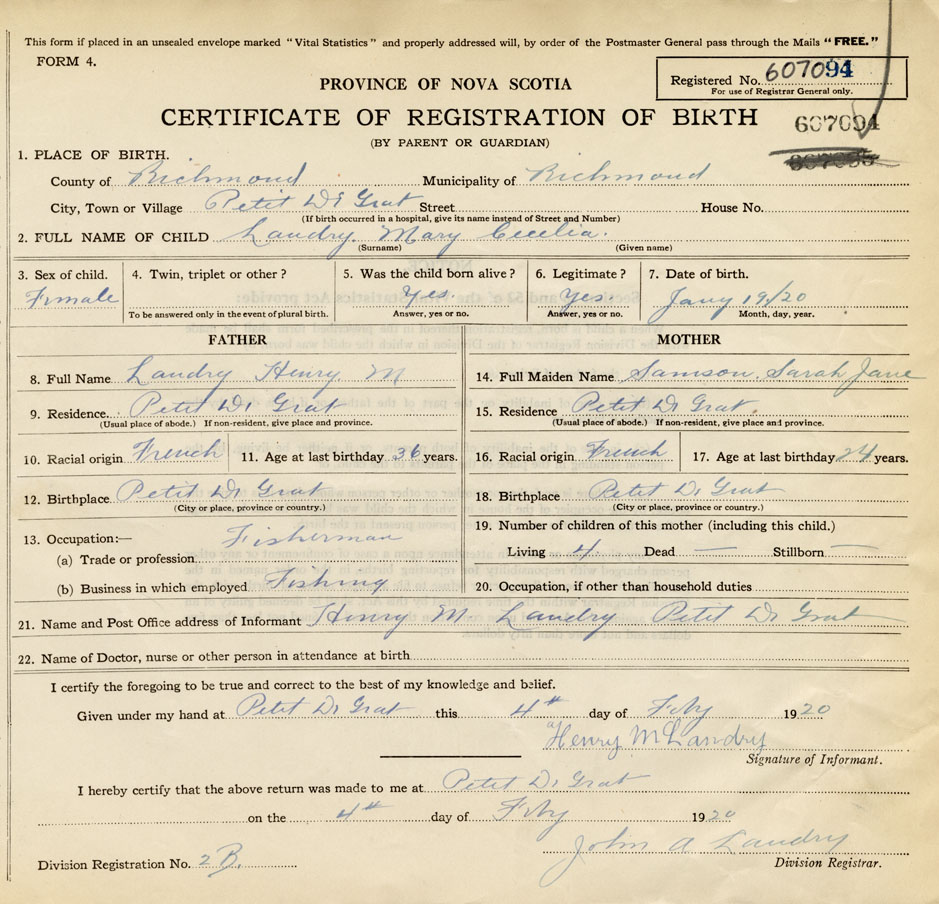 This form if placed in an unsealed envelope marked "Vital Statistics" and properly addressed will, by order of the Postmaster General pass through the Mails "FREE."
FORM 4.
Registered No. 607094
For use of Registrar General only.
PROVINCE OF NOVA SCOTIA
CERTIFICATE OF REGISTRATION OF BIRTH
607094
(BY PARENT OR GUARDIAN)
1. PLACE OF BIRTH.
County of Richmond Municipality of Richmond
City, Town or Village Petit De Grat Street House No.
(If birth occurred in a hospital, give its name instead of Street and Number)
2. FULL NAME OF CHILD Landry. Mary Cecelia.
(Surname) (Given name)
3. Sex of child. 4. Twin, triplet or other? 5. Was the child born alive? 6. Legitimate? 7. Date of birth.
Female Yes. Yes. Jany 19/20
To be answered only in the event of plural birth. Answer, yes or no. Answer, yes or no. Month, day, year.
FATHER MOTHER
8. Full Name Landry Henry. M 14. Full Maiden Name Samson. Sarah Jane
9. Residence. Petit De Grat 15. Residence Petit De Grat.
(Usual place of abode.) If non-resident, give place and province. (Usual place of abode.) If non-resident, give place and province.
10. Racial origin French 11. Age at last birthday 36 years. 16. Racial origin French 17. Age at last birthday 24 years.
12. Birthplace Petit De Grat 18. Birthplace Petit De Grat
(City or place, province or country.) (City or place, province or country.)
13. Occupation:— Fisherman 19. Number of children of this mother (including this child.)
(a) Trade or profession Living 4 Dead — Stillborn —
(b) Business in which employed Fishing 20. Occupation, if other than household duties
21. Name and Post Office address of Informant Henry M. Landry Petit De Grat
22. Name of Doctor, nurse or other person in attendance at birth
I certify the foregoing to be true and correct to the best of my knowledge and belief.
Given under my hand at Petit De Grat this 4th day of Feby 1920
Henry M Landry
Signature of Informant.
I hereby certify that the above return was made to me at Petit De Grat
on the 4th day of Feby 1920
John A Landry
Division Registration No. 2 B. Division Registrar.